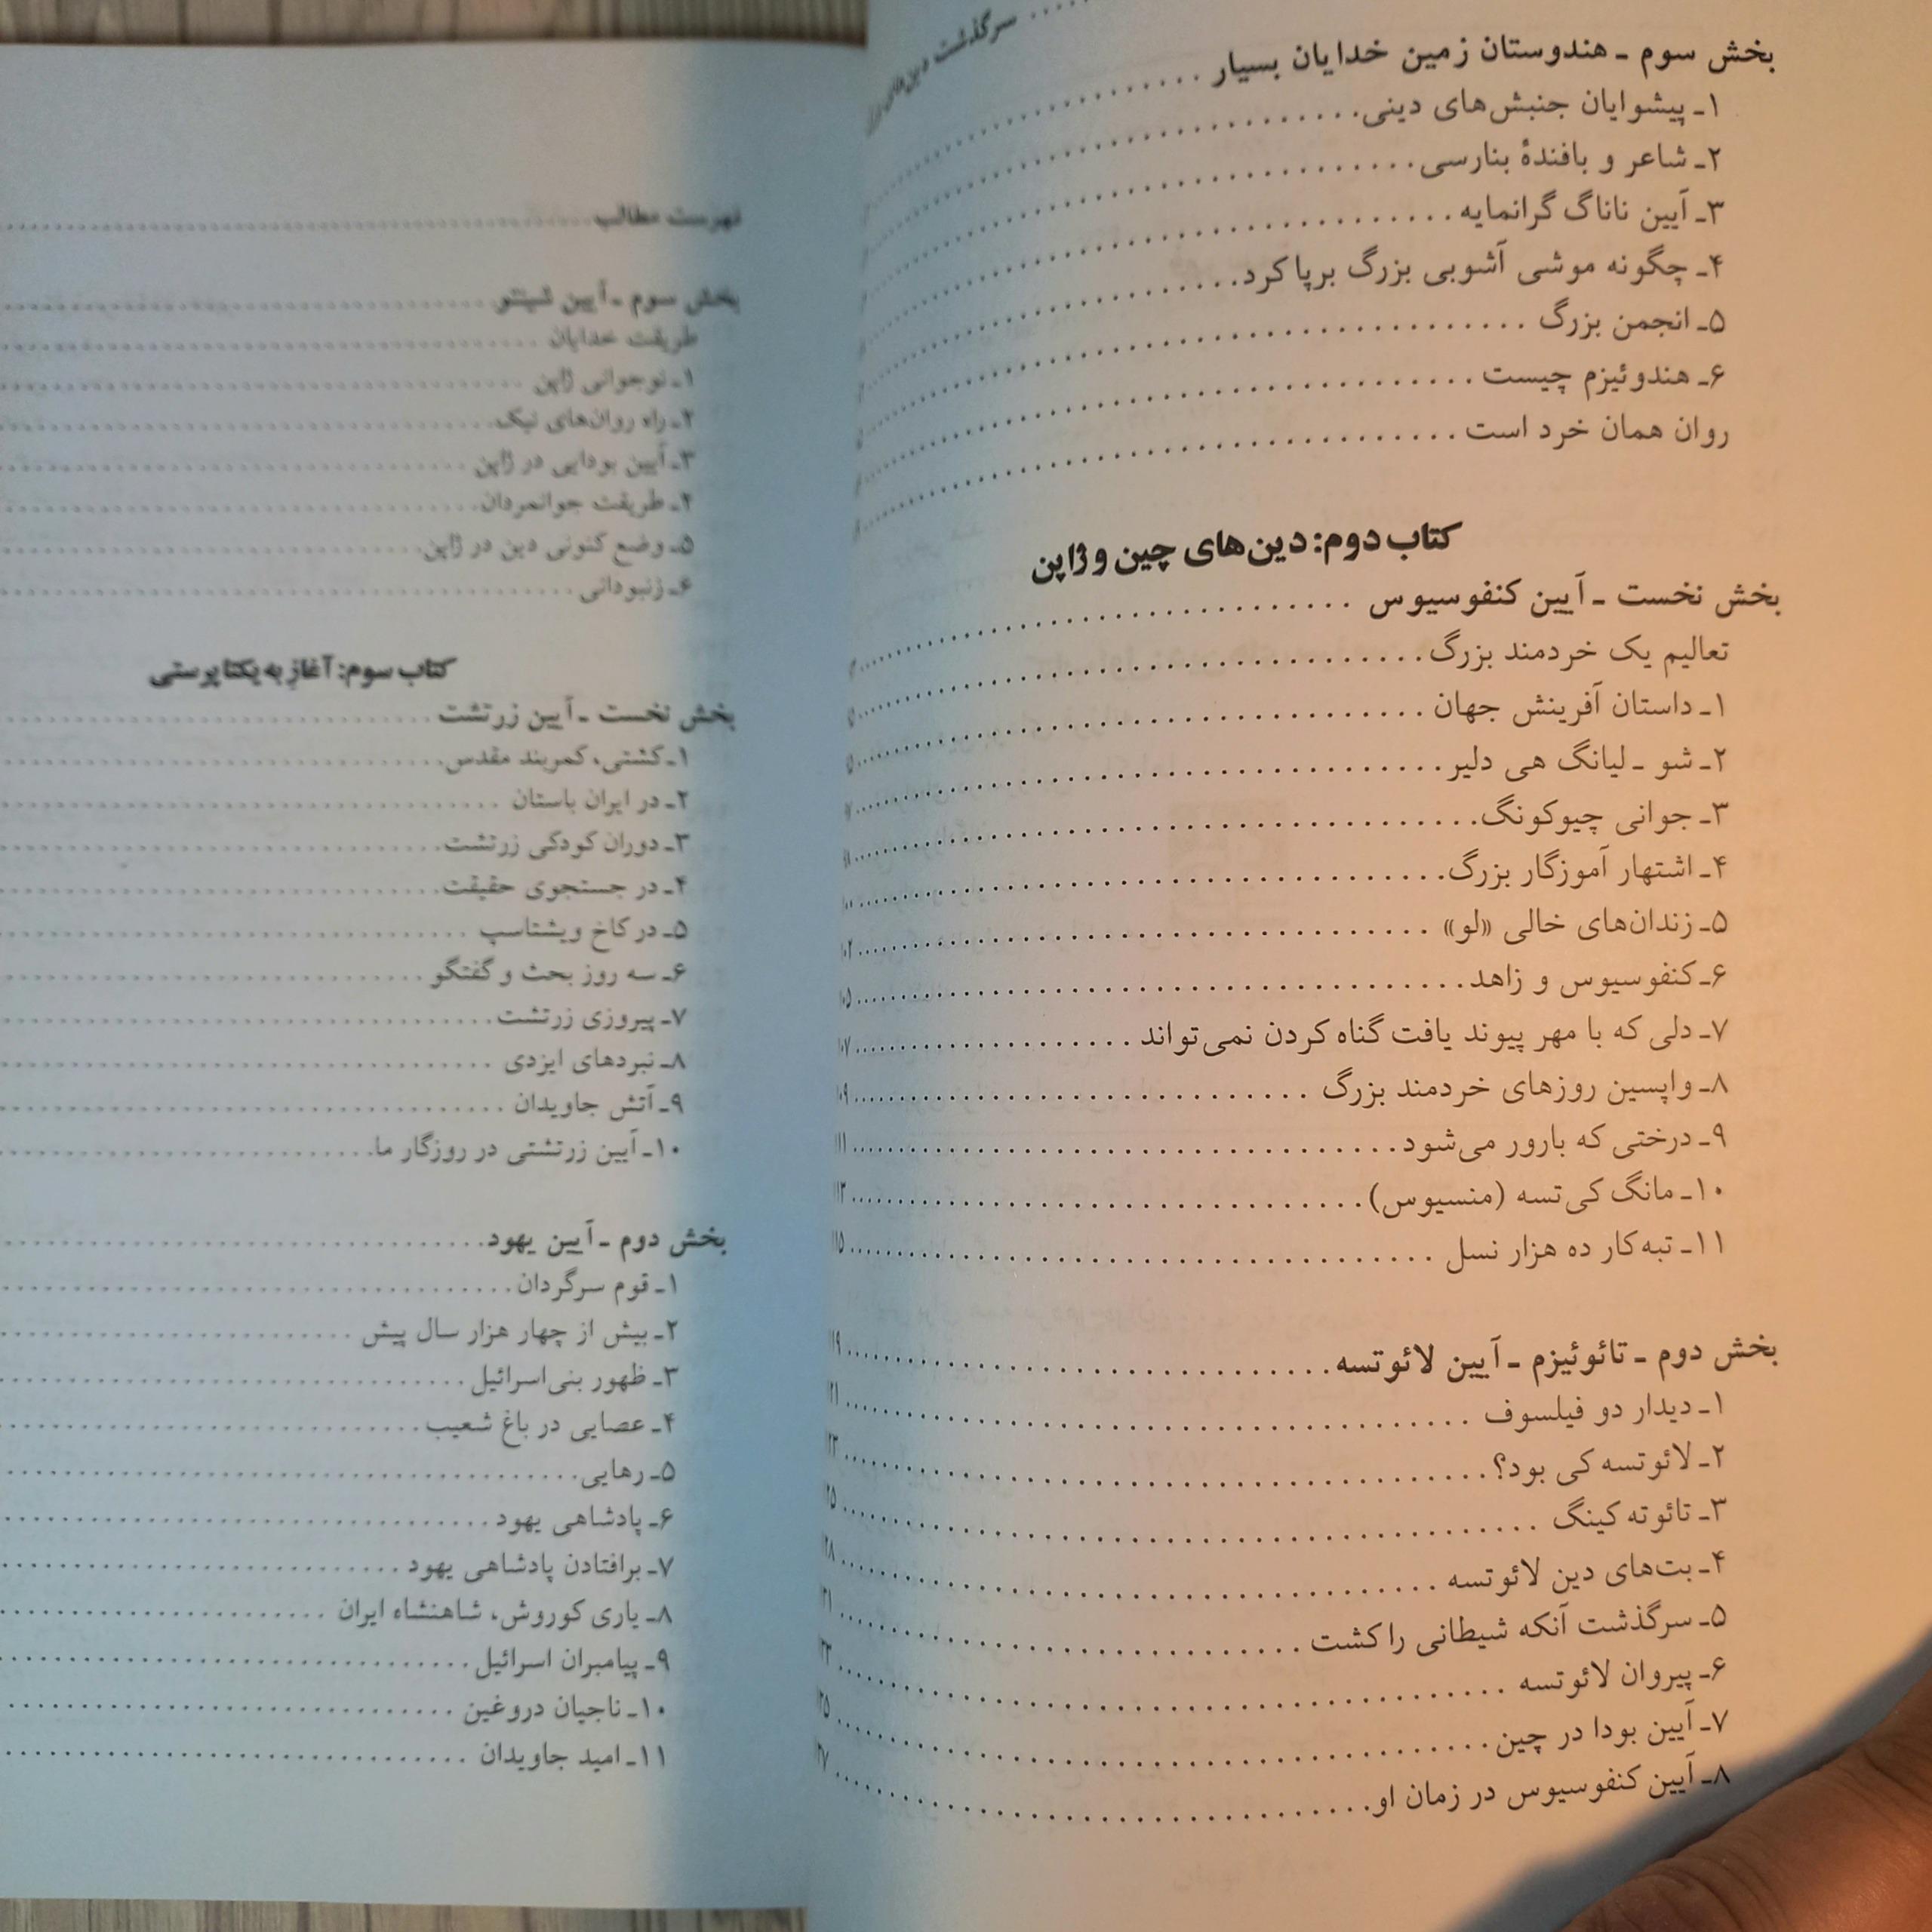 سرگذشت دین‌های
بخش سوم ـ هندوستان زمین خدایان بسیار
۱ـ پیشوایان جنبش‌های دینی
۲ـ شاعر و بافندهٔ بنارسی
۳ـ آیین ناناگ گرانمایه
۴ـ چگونه موشی آشوبی بزرگ برپا کرد
۵ـ انجمن بزرگ
۶ـ هندوئیزم چیست
روان همان خرد است
کتاب دوم: دین‌های چین و ژاپن
بخش نخست ـ آیین کنفوسیوس
تعالیم یک خردمند بزرگ
۱ـ داستان آفرینش جهان
۲ـ شو ـ لیانگ هی دلیر
۳ـ جوانی چیوکونگ
۴ـ اشتهار آموزگار بزرگ
۵ـ زندان‌های خالی «لو» ۱۰۲
۶ـ کنفوسیوس و زاهد ۱۰۵
۷ـ دلی که با مهر پیوند یافت گناه کردن نمی‌تواند ۱۰۷
۸ـ واپسین روزهای خردمند بزرگ ۱۰۹
۹ـ درختی که بارور می‌شود ۱۱۱
۱۰ـ مانگ کی‌تسه (منسیوس) ۱۱۳
۱۱ـ تبه‌کار ده هزار نسل ۱۱۵
بخش دوم ـ تائوئیزم ـ آیین لائوتسه ۱۱۹
۱ـ دیدار دو فیلسوف
۲ـ لائوتسه کی بود؟
۳ـ تائوته کینگ
۴ـ بت‌های دین لائوتسه
۵ـ سرگذشت آنکه شیطانی را کشت
۶ـ پیروان لائوتسه
۷ـ آیین بودا در چین
۸ـ آیین کنفوسیوس در زمان او
فهرست مطالب
بخش سوم ـ آیین شینتو
طریقت خدایان
۱ـ نوجوانی ژاپن
۲ـ راه روان‌های نیک
۳ـ آیین بودایی در ژاپن
۴ـ طریقت جوانمردان
۵ـ وضع کنونی دین در ژاپن
۶ـ زنبودائی
کتاب سوم: آغازِ به یکتاپرستی
بخش نخست ـ آیین زرتشت
۱ـ کشتی، کمربند مقدس
۲ـ در ایران باستان
۳ـ دوران کودکی زرتشت
۴ـ در جستجوی حقیقت
۵ـ در کاخ ویشتاسپ
۶ـ سه روز بحث و گفتگو
۷ـ پیروزی زرتشت
۸ـ نبردهای ایزدی
۹ـ آتش جاویدان
۱۰ـ آیین زرتشتی در روزگار ما
بخش دوم ـ آیین یهود
۱ـ قوم سرگردان
۲ـ بیش از چهار هزار سال پیش
۳ـ ظهور بنی‌اسرائیل
۴ـ عصایی در باغ شعیب
۵ـ رهایی
۶ـ پادشاهی یهود
۷ـ برافتادن پادشاهی یهود
۸ـ یاری کوروش، شاهنشاه ایران
۹ـ پیامبران اسرائیل
۱۰ـ ناجیان دروغین
۱۱ـ امید جاویدان